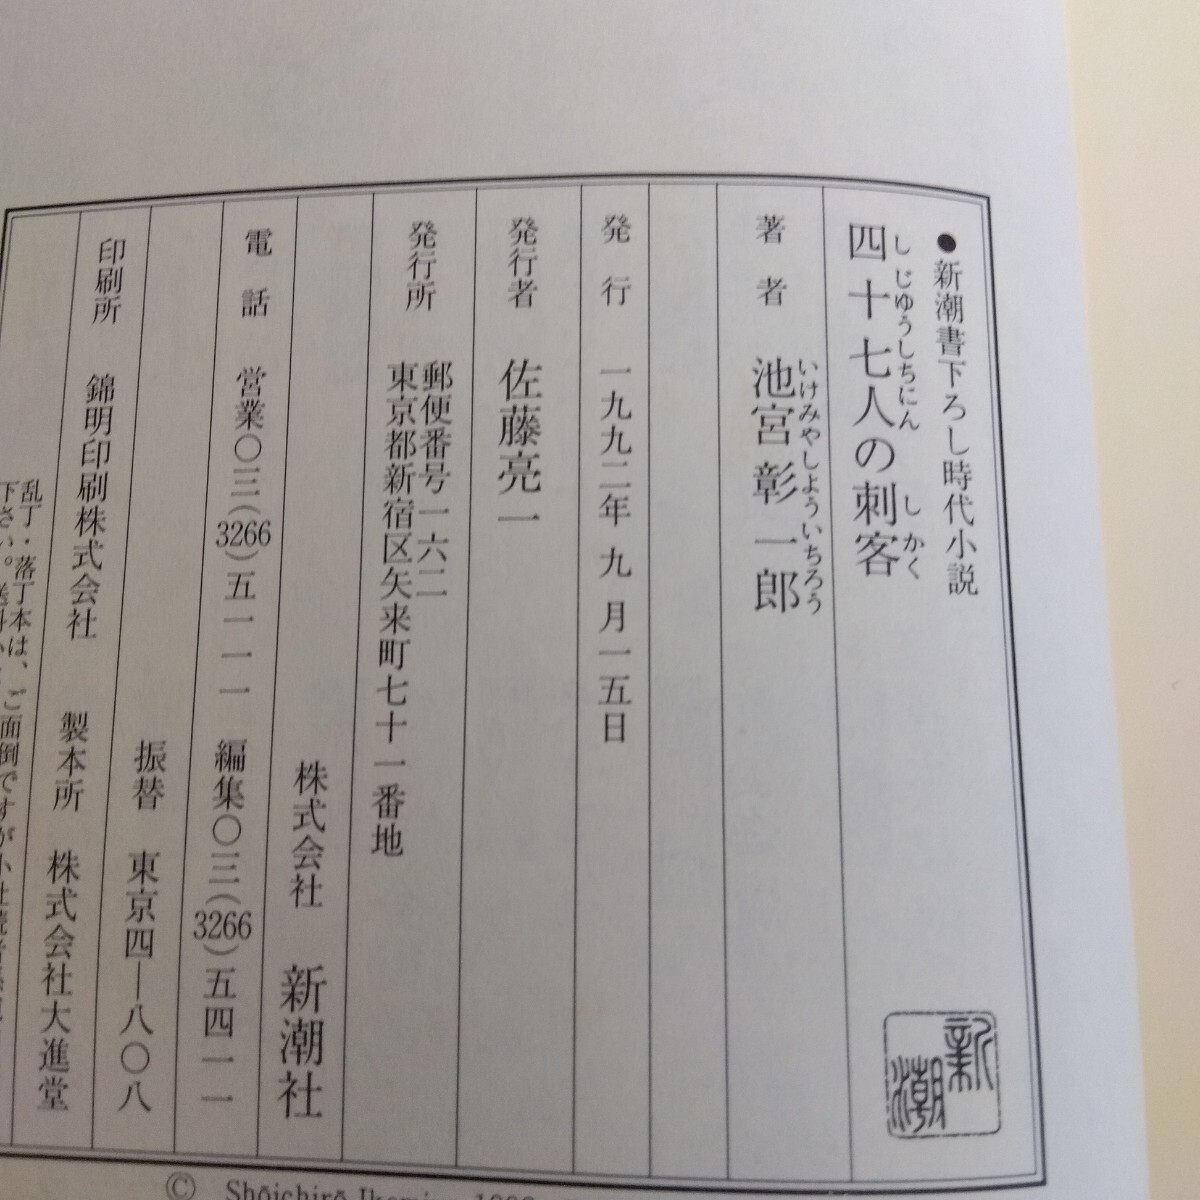 ●新潮書下ろし時代小説
しじゅうしちにん しかく
四十七人の刺客
いけみやしょういちろう
著者 池宮彰一郎
発行 一九九二年九月一五日
発行者 佐藤亮一
発行所 郵便番号一六二
東京都新宿区矢来町七十一番地
株式会社 新潮社
電話 営業〇三(3266)五一一一 編集〇三(3266)五四一一
振替 東京四―八〇八
印刷所 錦明印刷株式会社 製本所 株式会社大進堂
乱丁・落丁本は、ご面倒ですが小社
下さい。
新潮
© Shōichirō